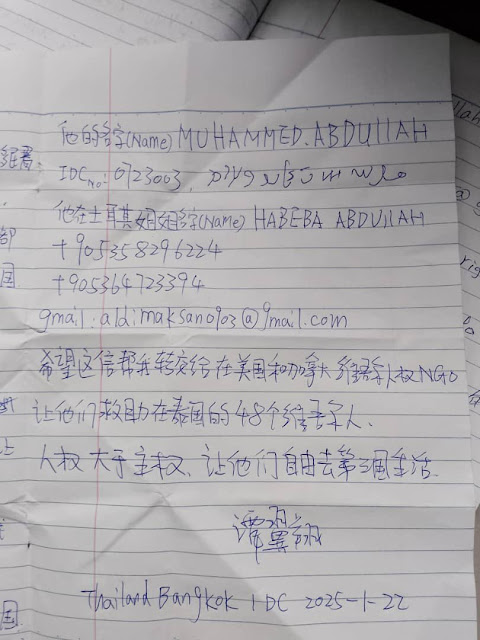 他的名字(Name) MUHAMMED.ABDUllAH
IDC No: 0723003,
他在土耳其姐姐名字(Name) HABEBA ABDUllAH
+905358296224
+905364723394
gmail: aldimaksano903@gmail.com
希望这信帮我转交给在美国和加拿大维吾尔人权NGO
让他们救助在泰国的48个维吾尔人.
人权大于主权、让他们自由去第三国生活.
Thailand Bangkok IDC 2025-1-22